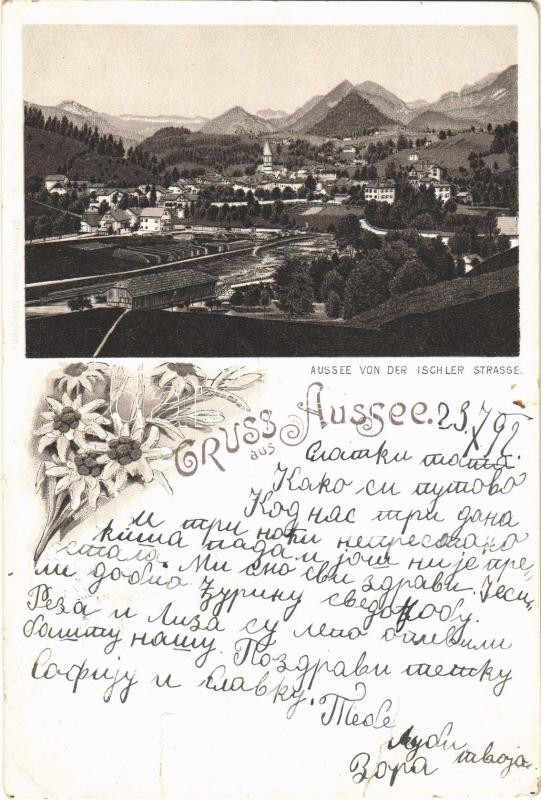 AUSSEE VON DER ISCHLER STRASSE.
GRUSS aus AUSSEE.
23/7 92
Слатки тата!
Како си путово
Код нас три дана
и три ноћи непрестано
киша пада и још није пре-
стала. Ми смо сви здрави. Јеси
ли добио Ђурину сведоџбу.
Реза и Лиза су лепо оплевили
башту нашу. Поздрави тетку
Софију и Славку. Тебе
љуби твоја
Зора